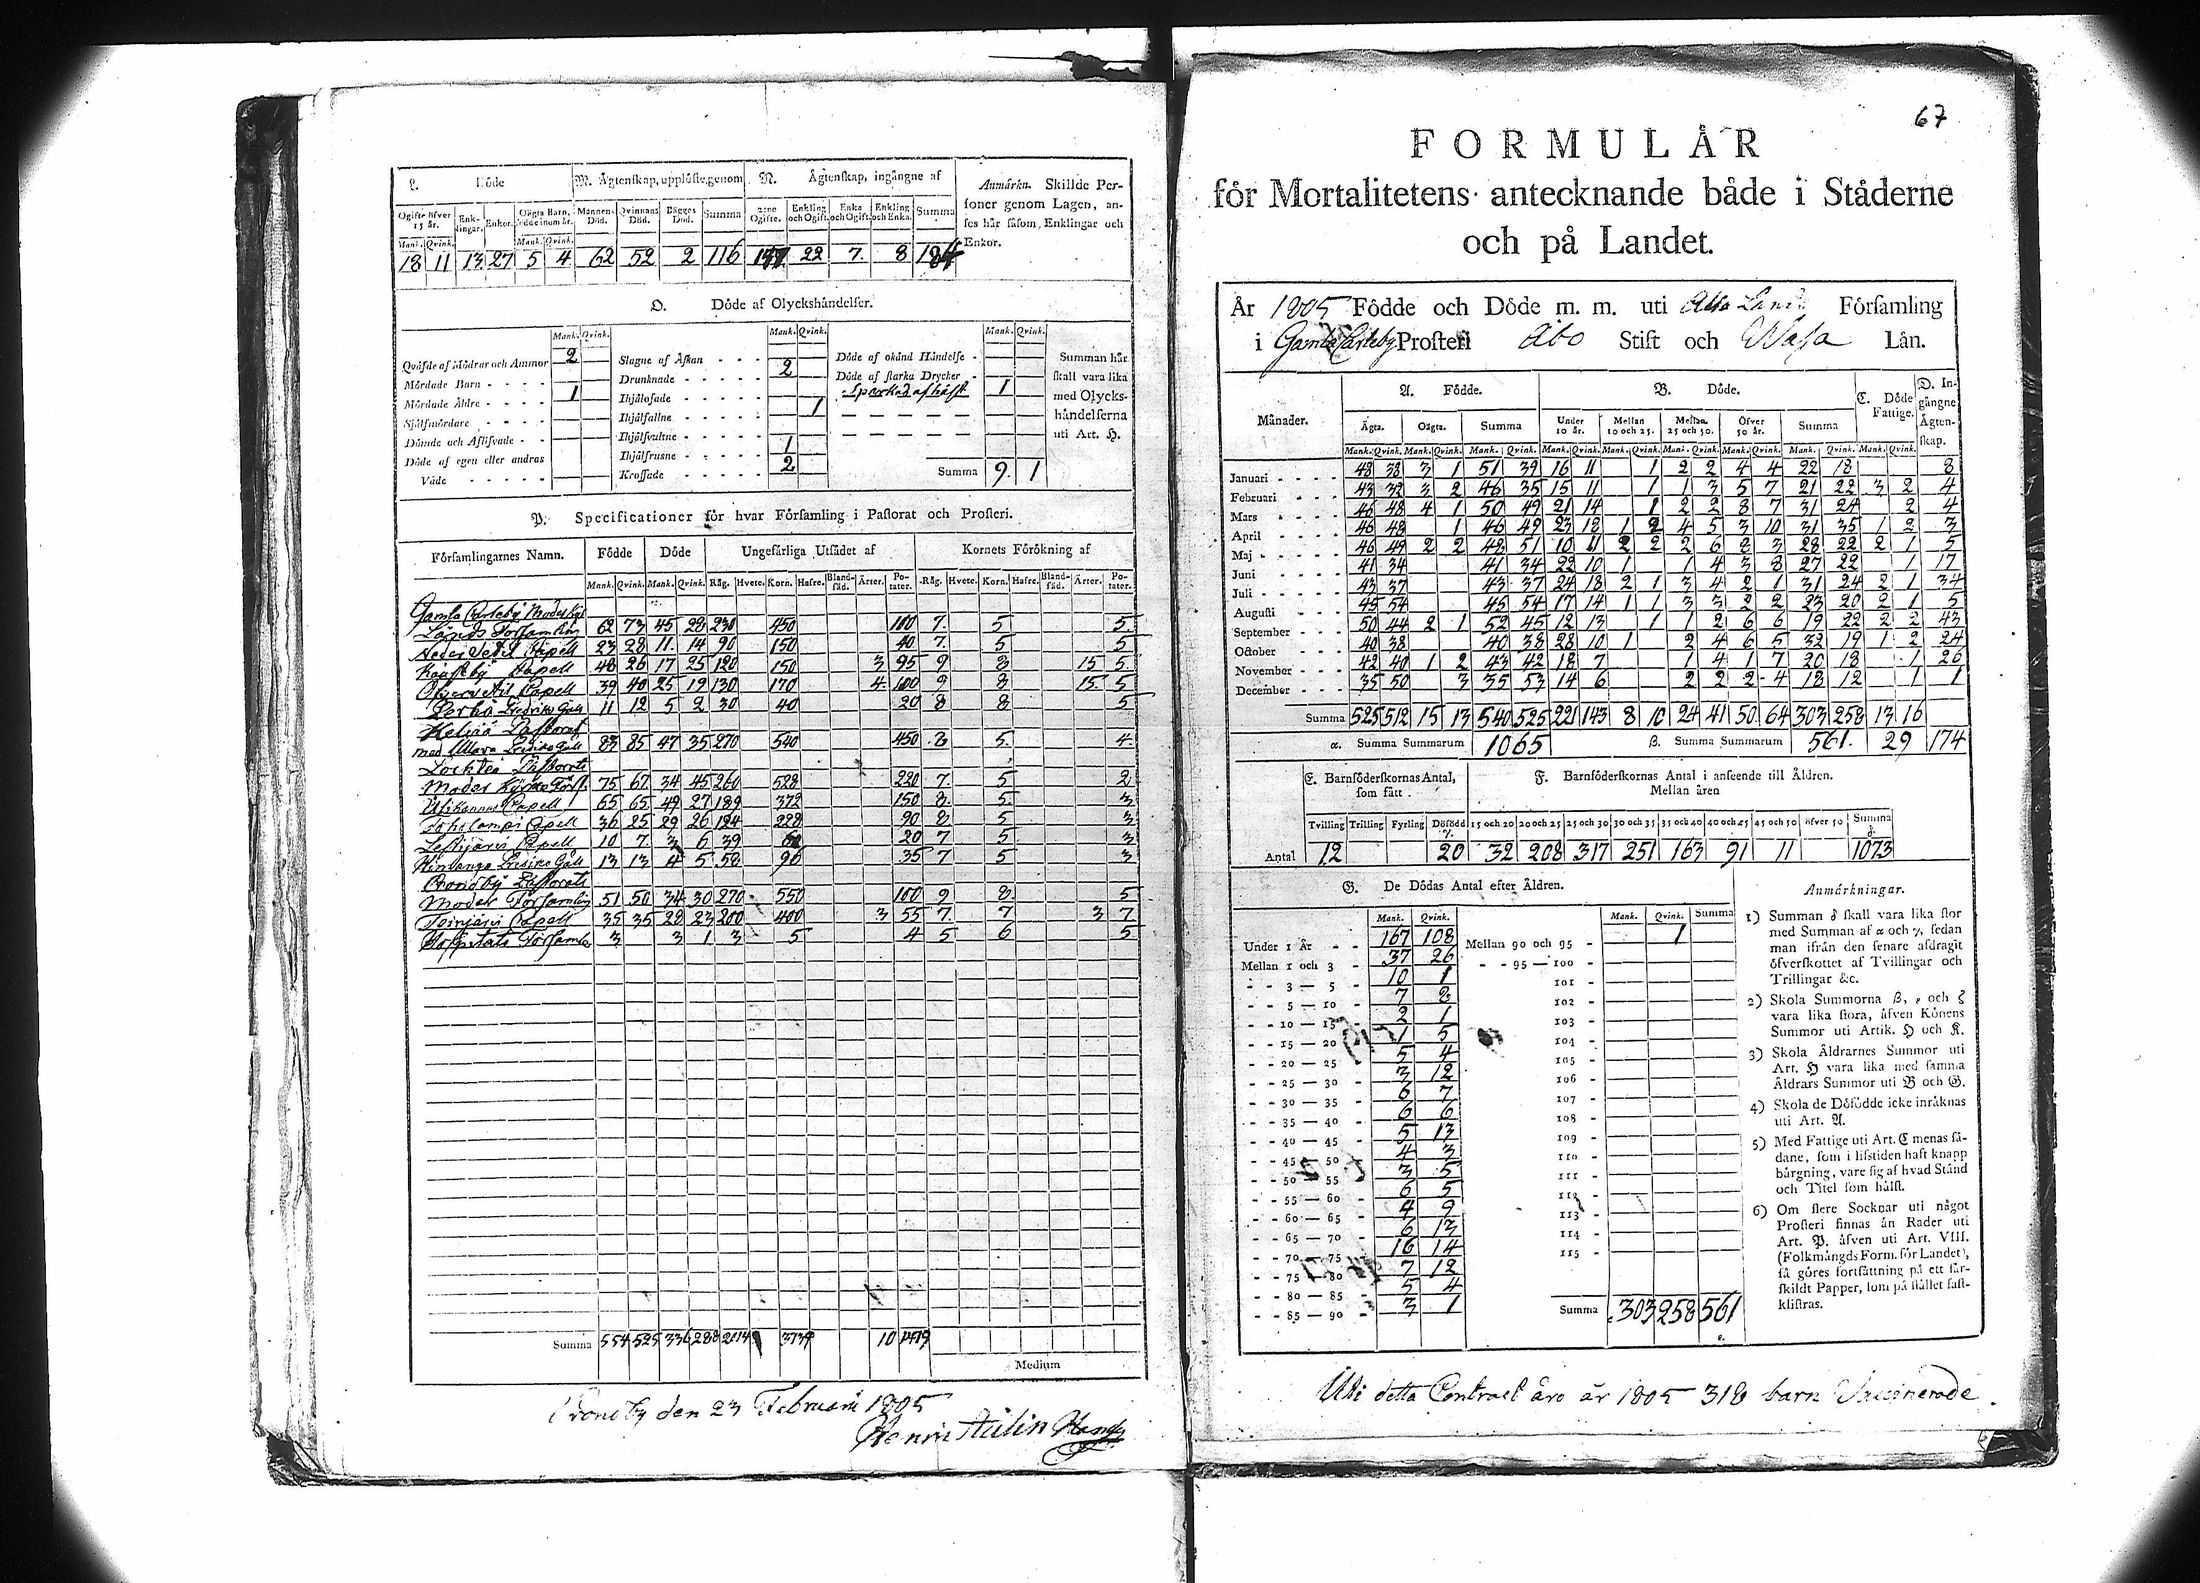 L. Döde
M. Ägtenskap, upplöste genom
N. Ägtenskap, ingångne af
Anmärkn. Skillde Personer genom Lagen, anses här såsom Enklingar och Enkor.
Ogifte öfver 15 år. Enklingar. Enkor. Oägta Barn, födde inom år. Mannens Död. Qvinnans Död. Bägges Död. Summa Ogifte. Enkling och Ogift. Enka och Ogift. Enkling och Enka. Summa
Mank. Qvink. Mank. Qvink.
18 11 13 27 5 4 62 52 2 116 147 22 7. 8 184
O. Döde af Olyckshändelser.
Mank. Qvink. Mank. Qvink. Mank. Qvink.
Qväfde af Mödrar och Ammor 2
Mördade Barn
Mördade Äldre 1
Självmördare
Dömde och Aflifvade
Döde af egen eller andras Våde
Slagne af Åskan
Drunknade 2
Ihjälosade
Ihjälfallne 1
Ihjälsvultne
Ihjälfrusne 1
Krossade 2
Döde af okänd Händelse
Döde af starka Drycker
Sparkad af häst 1
Summa 9. 1
Summan här skall vara lika med Olyckshändelserna uti Art. H.
P. Specificationer för hvar Församling i Pastorat och Prosteri.
Församlingarnes Namn. Födde Döde Ungefärliga Utsädet af Kornets Förökning af
Mank. Qvink. Mank. Qvink. Råg. Hvete. Korn. Hafre. Blandsäd. Ärter. Potater. Råg. Hvete. Korn. Hafre. Blandsäd. Ärter. Potater.
Gamla Carleby Moderkyrk
Lands Församling 62 73 45 28 230 450 100 7. 5 5
Capell 23 28 11. 14 90 150 40 7. 5 5
Capell 48 26 17 25 120 150 3 95 9 8 15 5
Capell 39 40 25 19 130 170 4 100 9 8 15. 5
Perho Prediko Gäll 11 12 5 2 30 40 20 8 8 5
Kelviå Pastorat
med Ullava Prediko Gäll 83 85 47 35 270 540 450 8 5. 4.
Lochteå Pastorat
Moder Kyrko Förs. 75 67 34 45 260 528 220 7. 5 2
Capell 65 65 49 27 189 372 150 8. 5. 3
Toholampi Capell 36 25 29 26 124 228 90 8 5 3
Lestijärvi Capell 10 7. 3 6 39 20 7 5 3
Himango Prediko Gäll 13 13 4 5 58 90 35 7 5 3
Cronoby Pastorat
Moder Församling 51 50 34 30 270 550 100 9 8. 5
Capell 35 35 28 23 200 400 3 55 7. 7 3 7
Hospitals Församl. 3 3 1 3 5 4 5 6 5
Summa 554 525 336 288 3739 10
Medium
Cronoby den 23 Februarii 1805
67
FORMULÄR
för Mortalitetens antecknande både i Städerne
och på Landet.
År 1805 Födde och Döde m. m. uti Församling
i Gamla Carleby Prosteri Åbo Stift och Wasa Län.
Månader. A. Födde. B. Döde. C. Döde Fattige. D. Ingångne Ägtenskap.
Ägta. Oägta. Summa Under 10 år. Mellan 10 och 25. Mellan 25 och 50. Öfver 50 år. Summa
Januari 48 38 3 1 51 39 16 11 1 2 2 4 4 22 18 8
Februari 43 32 3 2 46 35 15 11 1 1 3 5 7 21 22 3 2 4
Mars 46 48 4 1 50 49 21 14 1 2 2 8 7 31 24 2 4
April 46 48 1 46 49 23 18 1 2 4 5 3 10 31 35 1 2 3
Maj 46 49 2 2 48 51 10 11 2 2 2 6 2 3 28 22 2 1 5
Juni 41 34 41 34 22 10 1 1 4 3 8 27 22 1 17
Juli 43 37 43 37 24 18 2 1 3 4 2 1 31 24 2 1 34
Augusti 45 54 45 54 17 14 1 1 3 3 2 2 23 20 2 1 5
September 50 44 2 1 52 45 12 13 1 1 2 6 6 19 22 2 2 43
October 40 38 40 38 28 10 1 2 4 6 5 32 19 1 2 24
November 42 40 1 2 43 42 18 7 1 4 1 7 20 18 1 26
December 35 50 3 35 53 14 6 2 2 2 4 18 12 1 1
Summa 525 512 15 13 540 525 221 143 8 10 24 41 50 64 303 258 13 16
α. Summa Summarum 1065 β. Summa Summarum 561. 29 174
E. Barnföderskornas Antal, som fått
F. Barnföderskornas Antal i anseende till Åldren. Mellan åren
Tvilling Trilling Fyrling Dödfödd γ. 15 och 20 20 och 25 25 och 30 30 och 35 35 och 40 40 och 45 45 och 50 öfver 50 Summa δ.
Antal 12 20 32 208 317 251 163 91 11 1073
G. De Dödas Antal efter Åldren.
Mank. Qvink. Mank. Qvink. Summa
Under 1 År 167 108 Mellan 90 och 95 1
Mellan 1 och 3 37 26 95 — 100
3 — 5 10 1 101
5 — 10 7 8 102
10 — 15 2 1 103
15 — 20 1 5 104
20 — 25 5 4 105
25 — 30 3 12 106
30 — 35 6 7 107
35 — 40 6 6 108
40 — 45 5 13 109
45 — 50 4 3 110
50 — 55 3 5 111
55 — 60 6 5 112
60 — 65 4 9 113
65 — 70 6 13 114
70 — 75 16 14 115
75 — 80 7 12
80 — 85 5 4
85 — 90 3 1 Summa 303 258 561
Anmärkningar.
1) Summan δ skall vara lika stor
med Summan af α och γ, sedan
man ifrån den senare afdragit
öfverskottet af Tvillingar och
Trillingar &c.
2) Skola Summorna β, ε och ζ
vara lika stora, äfven Könens
Summor uti Artik. H och K.
3) Skola Åldrarnes Summor uti
Art. H vara lika med samma
Åldrars Summor uti B och G.
4) Skola de Dödfödde icke inräknas
uti Art. A.
5) Med Fattige uti Art. C menas sådane,
som i lifstiden haft knapp
bärgning, vare sig af hvad Stånd
och Titel som hälst.
6) Om flere Socknar uti något
Prosteri finnas än Rader uti
Art. P. äfven uti Art. VIII.
(Folkmängds Form. för Landet),
så göres fortsättning på ett särskildt
Papper, som på stället fastklistras.
Uti detta Contract äro år 1805 318 barn Vaccinerade.